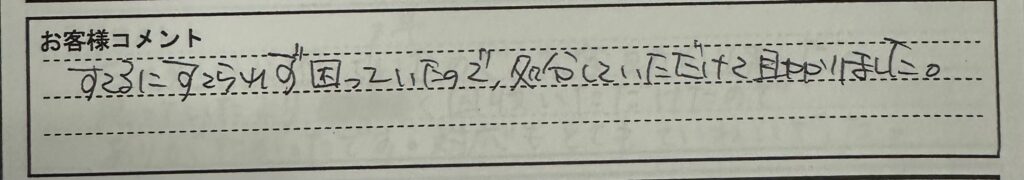 お客様コメント
すてるにすてられず困っていたので、処分していただけて助かりました。